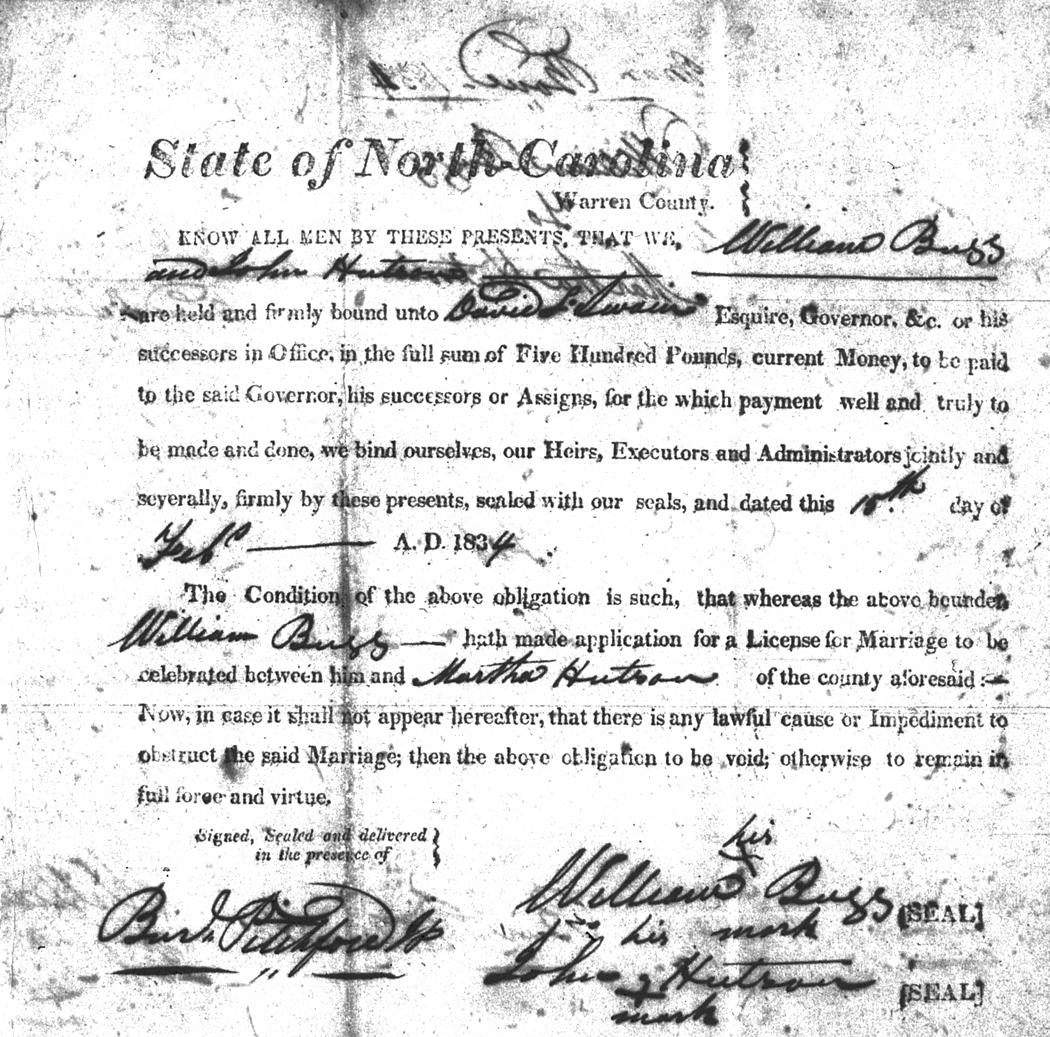 State of North-Carolina
Warren County.
KNOW ALL MEN BY THESE PRESENTS, THAT WE, William Bugg
and John Hutson
are held and firmly bound unto David L. Swain Esquire, Governor, &c. or his
successors in Office, in the full sum of Five Hundred Pounds, current Money, to be paid
to the said Governor, his successors or Assigns, for the which payment well and truly to
be made and done, we bind ourselves, our Heirs, Executors and Administrators jointly and
severally, firmly by these presents, sealed with our seals, and dated this 10th day of
Feb A. D. 1834.
The Condition of the above obligation is such, that whereas the above bounden
William Bugg hath made application for a License for Marriage to be
celebrated between him and Martha Hutson of the county aforesaid:
Now, in case it shall not appear hereafter, that there is any lawful cause or Impediment to
obstruct the said Marriage; then the above obligation to be void; otherwise to remain in
full force and virtue.
Signed, Sealed and delivered
in the presence of
his
William X Bugg [SEAL]
mark
his
John X Hutson [SEAL]
mark
Pitchford